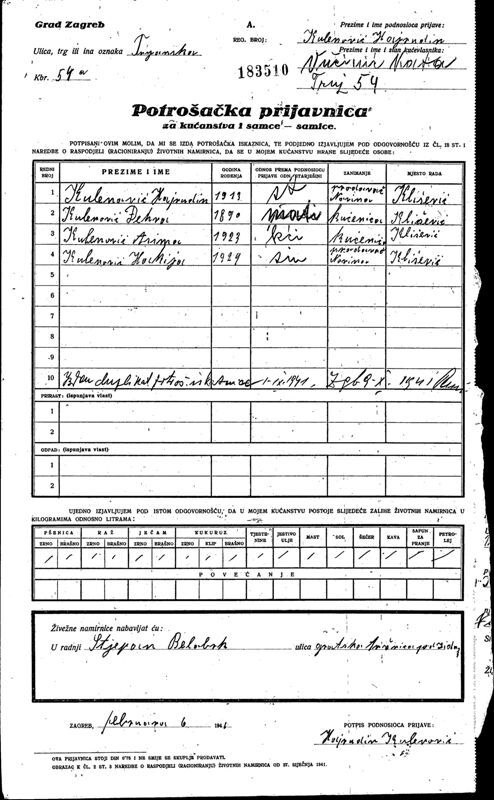 Grad Zagreb
A.
Prezime i ime podnosioca prijave:
REG. BROJ:
Kulenović Hajrudin
Ulica, trg ili ina oznaka
Prezime i ime i stan kućevlasnika:
Kbr. 54a
183510
Truj 54
Potrošačka prijavnica
za kućanstva i samce — samice.
POTPISANI OVIM MOLIM, DA MI SE IZDA POTROŠAČKA ISKAZNICA, TE PODJEDNO IZJAVLJUJEM POD ODGOVORNOŠĆU IZ ČL. 18 ST. I
NAREDBE O RASPODJELI (RACIONIRANJU) ŽIVOTNIH NAMIRNICA, DA SE U MOJEM KUĆANSTVU HRANE SLIJEDEĆE OSOBE:
REDNI BROJ
PREZIME I IME
GODINA ROĐENJA
ODNOS PREMA PODNOSIOCU PRIJAVE
ZANIMANJE
MJESTO RADA
1 Kulenović Hajrudin 1913
2 Kulenović Zehra 1890 mati kućanica
3 Kulenović 1923 kći kućanica
4 Kulenović Hakija 1929 sin
5
6
7
8
9
10 Izdan duplikat 1-IX-1941. Zgb 9-X-1941
PRIRAST: (ispunjava vlast)
1
2
OTPAD: (ispunjava vlast)
1
2
UJEDNO IZJAVLJUJEM POD ISTOM ODGOVORNOŠĆU, DA U MOJEM KUĆANSTVU POSTOJE SLIJEDEĆE ZALIHE ŽIVOTNIH NAMIRNICA U
KILOGRAMIMA ODNOSNO LITRAMA:
PŠENICA RAŽ JEČAM KUKURUZ TJESTENINE JESTIVO ULJE MAST SOL ŠEĆER KAVA SAPUN ZA PRANJE PETROLEJ
ZRNO BRAŠNO ZRNO BRAŠNO ZRNO BRAŠNO ZRNO KLIP BRAŠNO
/ / / / / / / / / / / / / / / / /
POVEĆANJE
Živežne namirnice nabavljat ću:
U radnji Stjepan ulica
ZAGREB, februara 6 194
POTPIS PODNOSIOCA PRIJAVE:
Hajrudin Kulenović
OVA PRIJAVNICA STOJI DIN 0'75 I NE SMIJE SE SKUPLJE PRODAVATI.
OBRAZAC K ČL. 2 ST. 3 NAREDBE O RASPODJELI (RACIONIRANJU) ŽIVOTNIH NAMIRNICA OD 27. SIJEČNJA 1941.